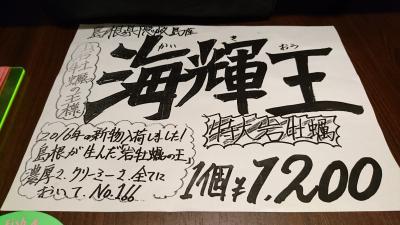 島根県隠岐島産
岩牡蠣の王様
かい き おう
海輝王
特大岩牡蠣
2016年の新物入荷しました!
島根が生んだ"岩牡蠣の王"
濃厚さ、クリーミーさ、全てに
おいて、No.1!!
1個¥1,200